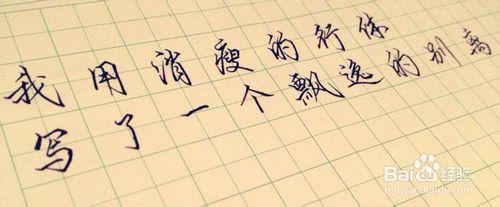 我用消瘦的行体
写了一个飘逸的别离
Baidu经验
jingyan.baidu.com